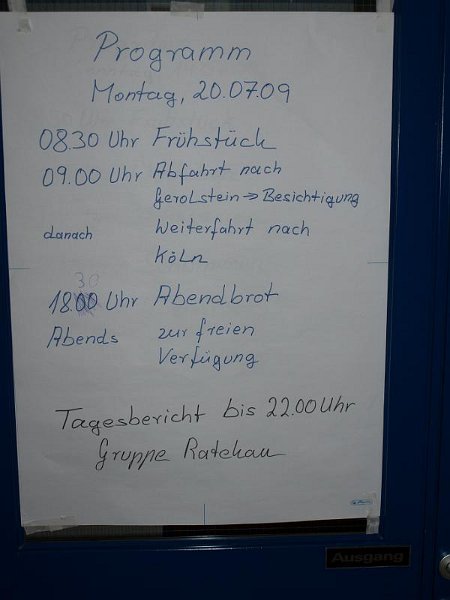 Programm
Montag, 20.07.09
08.30 Uhr Frühstück
09.00 Uhr Abfahrt nach
Gerolstein → Besichtigung
danach Weiterfahrt nach
Köln
30
18.00 Uhr Abendbrot
Abends zur freien
Verfügung
Tagesbericht bis 22.00 Uhr
Gruppe Ratekau
Ausgang